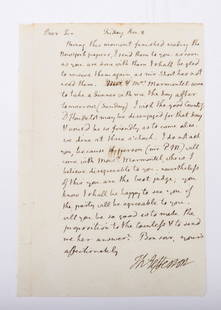 Dear Sir Friday Nov. 8
Having this moment finished reading the
Newport papers, I send them to you as soon
as you are done with them I shall be glad
to receive them again, as mr Short has not
read them. mrs Marmontel were
to take a dinner with me the day after
tomorrow (Sunday) I wish the good
may be disengaged for that day
& would be so friendly as to come also.
we dine at three o'clock. I do not ask
you, because (one P.M.) will
come with Mons. Marmontel, whom I
believe disagreeable to you. nevertheless
of this you are the best judge. you
know I shall be happy to see you if
the party will be agreeable to you.
will you be so good as to make the
proposition to the & to send
me her answer? Bon soir, yours
affectionately
Th: Jefferson